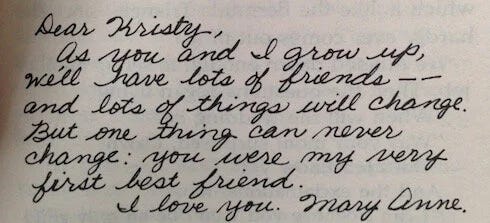 Dear Kristy,
As you and I grow up,
we'll have lots of friends --
and lots of things will change.
But one thing can never
change: you were my very
first best friend.
I love you. Mary Anne.